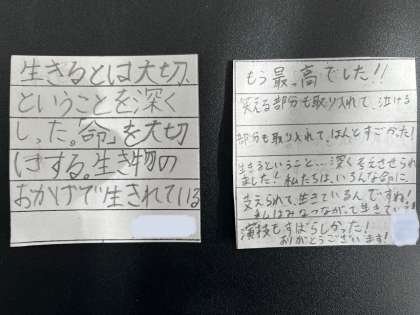 生きるとは大切、
ということを深く
しった。「命」を大切
にする。生き物の
おかげで生きれている
もう最っ高でした!!
笑える部分も取り入れて、泣ける
部分も取り入れて、ほんとすごかった!
生きるということ…深く考えさせられ
ました!私たちは、いろんな命に、
支えられて、生きているんですね!
みんなつながって生きている
演技もすばらしかった!
ありがとうございます!